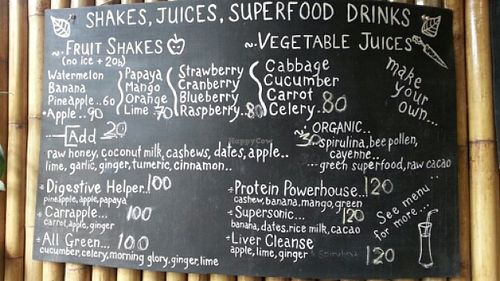 SHAKES, JUICES, SUPERFOOD DRINKS
~ FRUIT SHAKES
(no ice + 20b)
Watermelon
Banana
Pineapple..60
Apple..90
Papaya
Mango
Orange
Lime 70
Strawberry
Cranberry
Blueberry
Raspberry..80
~ VEGETABLE JUICES
Cabbage
Cucumber
Carrot
Celery..80
make
your
own...
Add 20
raw honey, coconut milk, cashews, dates, apple..
lime, garlic, ginger, tumeric, cinnamon..
~ ORGANIC..
30 spirulina, bee pollen,
cayenne..
green superfood, raw cacao
Digestive Helper..100
pineapple, apple, papaya
Carrapple.... 100
carrot, apple, ginger
All Green... 100
cucumber, celery, morning glory, ginger, lime
Protein Powerhouse..120
cashew, banana, mango, green
Supersonic... 120
banana, dates, rice milk, cacao
Liver Cleanse
apple, lime, ginger + Spirulina 120
See menu
for more...
HappyCow